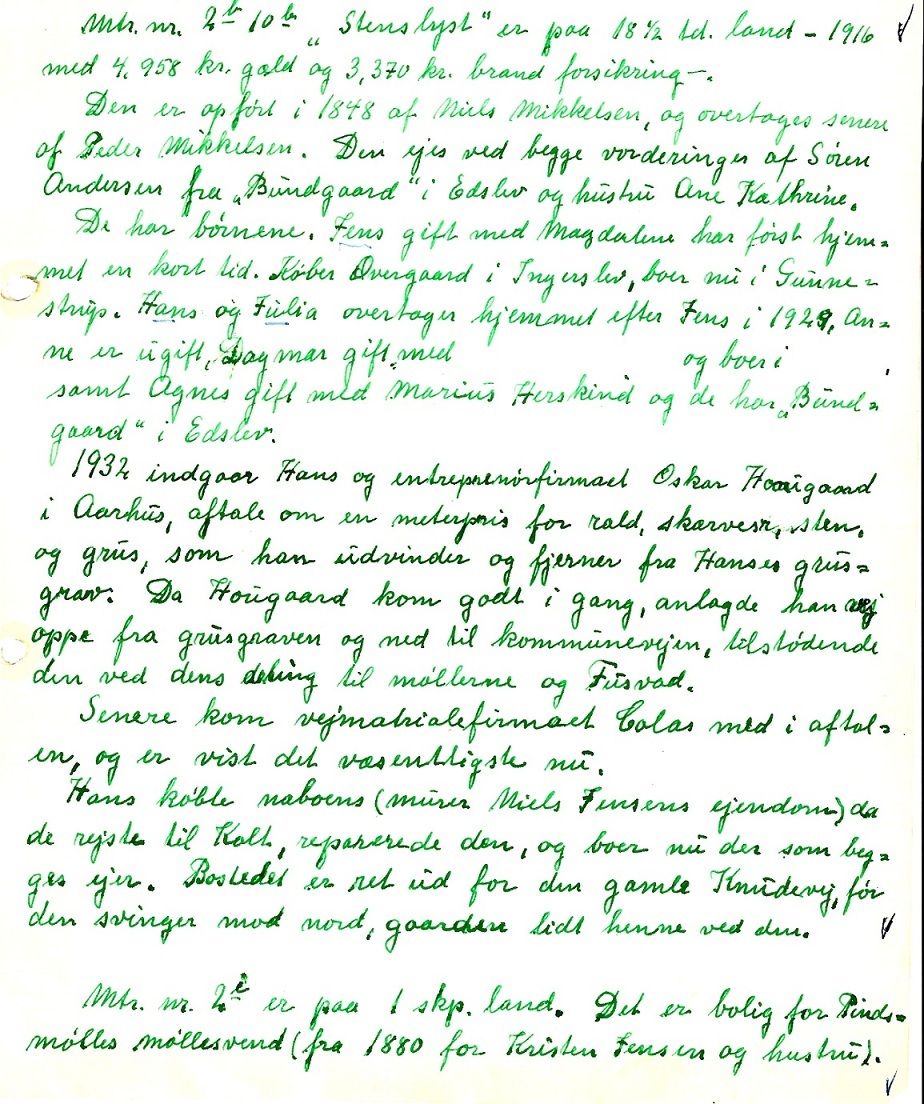 Mtr. nr. 2b 10b „Stenslyst" er paa 18½ td. land - 1916
med 4,958 kr. gæld og 3,370 kr. brand forsikring-.
Den er opført i 1848 af Niels Mikkelsen, og overtages senere
af Peder Mikkelsen. Den ejes ved begge vorderinger af Sören
Andersen fra „Bundgaard" i Edslev og hustru Ane Kathrine.
De har börnene. Jens gift med Magdalene har først hjem=
met en kort tid. Köber Overgaard i Ingerslev, boer nu i Gunne=
strup. Hans og Julia overtager hjemmet efter Jens i 1929, An=
ne er ugift, Dagmar gift med og boer i ,
samt Agnes gift med Marius Herskind og de har „Bund=
gaard" i Edslev.
1932 indgaar Hans og entreprenörfirmaet Oskar Hougaard
i Aarhus, aftale om en meterpris for rald, skærver, sten,
og grus, som han udvinder og fjerner fra Hanses grus=
grav. Da Hougaard kom godt i gang, anlagde han vej
oppe fra grusgraven og ned til kommunevejen, tilstödende
den ved dens deling til möllerne og Fusvad.
Senere kom vejmatrialefirmaet Colas med i aftal=
en, og er vist det væsentligste nu.
Hans köbte naboens (murer Niels Jensens ejendom) da
de rejste til Kolt, reparerede den, og boer nu der som beg=
ges ejer. Bostedet er ret ud for den gamle Knudevej, för
den svinger mod nord, gaarden lidt henne ved den.
Mtr. nr. 2i er paa 1 skp. land. Det er bolig for Pinds=
mölles möllesvend (fra 1880 for Kristen Jensen og hustru).